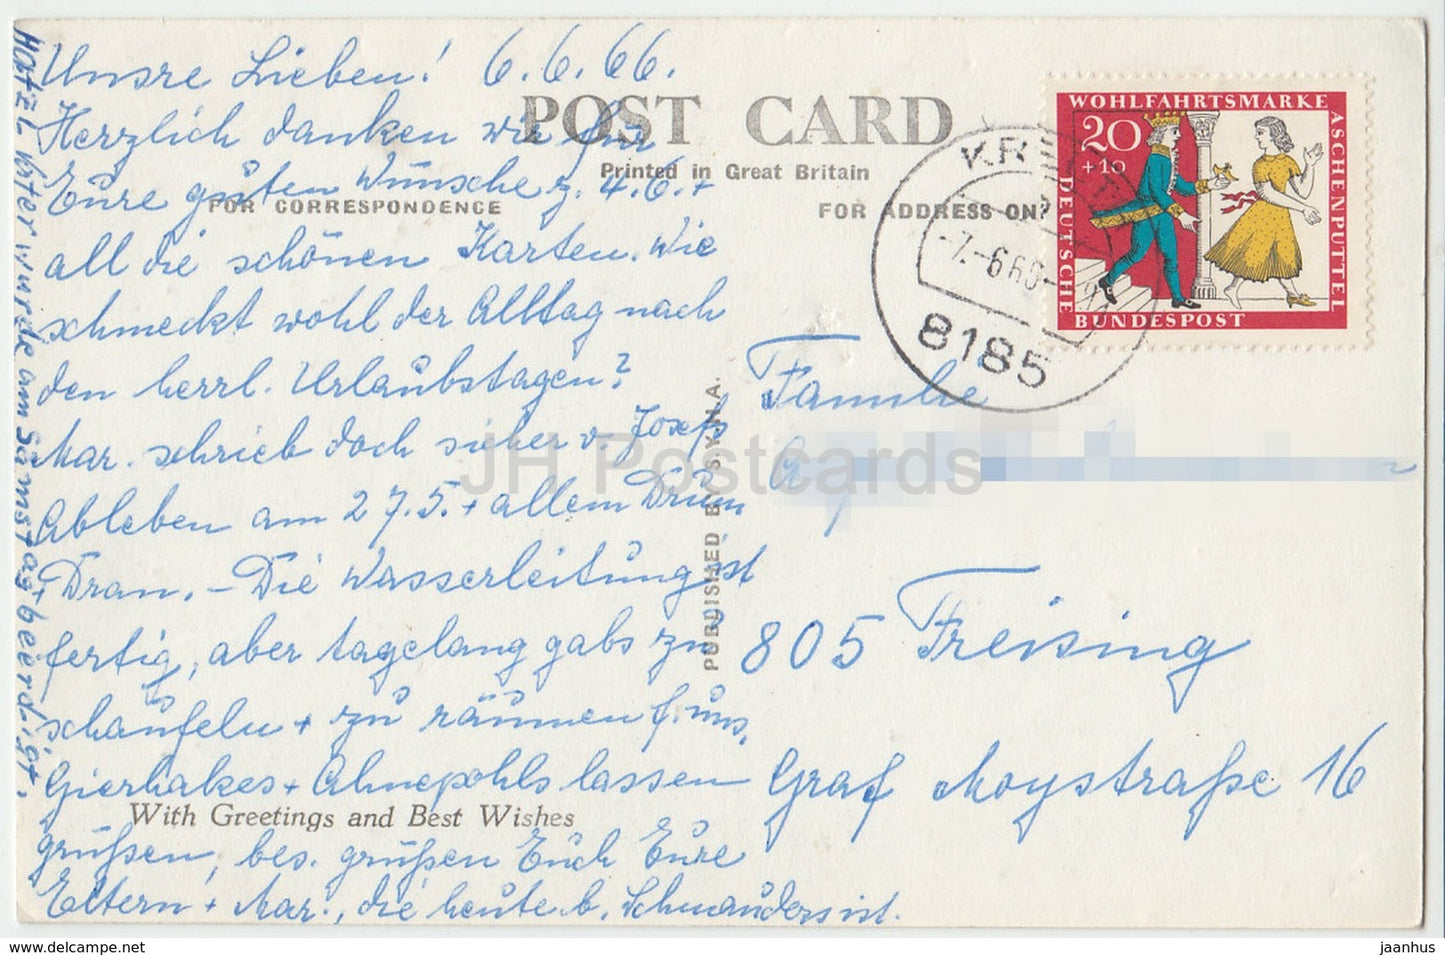 Unsre Lieben! 6.6.66.
Herzlich danken wir für
Eure guten Wünsche z. 4.6. +
all die schönen Karten. Wie
schmeckt wohl der Alltag nach
den herrl. Urlaubstagen?
Mar. schrieb doch sicher v. Josefs
Ableben am 27.5. + allem Drum
+ Dran. – Die Wasserleitung ist
fertig, aber tagelang gabs zu
schaufeln + zu räumen f. uns.
Gierhakes + Ahnepohls lassen
grüßen, bes. grüßen Euch Eure
Eltern + Mar., die heute b. Schwanders ist.
Vater wurde am Samstag beerdigt.
POST CARD
Printed in Great Britain
FOR CORRESPONDENCE
FOR ADDRESS ONLY
PUBLISHED BY S.Y.H.A.
With Greetings and Best Wishes
WOHLFAHRTSMARKE
ASCHENPUTTEL
20
+10
DEUTSCHE
BUNDESPOST
-7.-6.66-
8185
Familie
805 Freising
Graf Moystraße 16
JH Postcards
www.delcampe.net
jaanhus